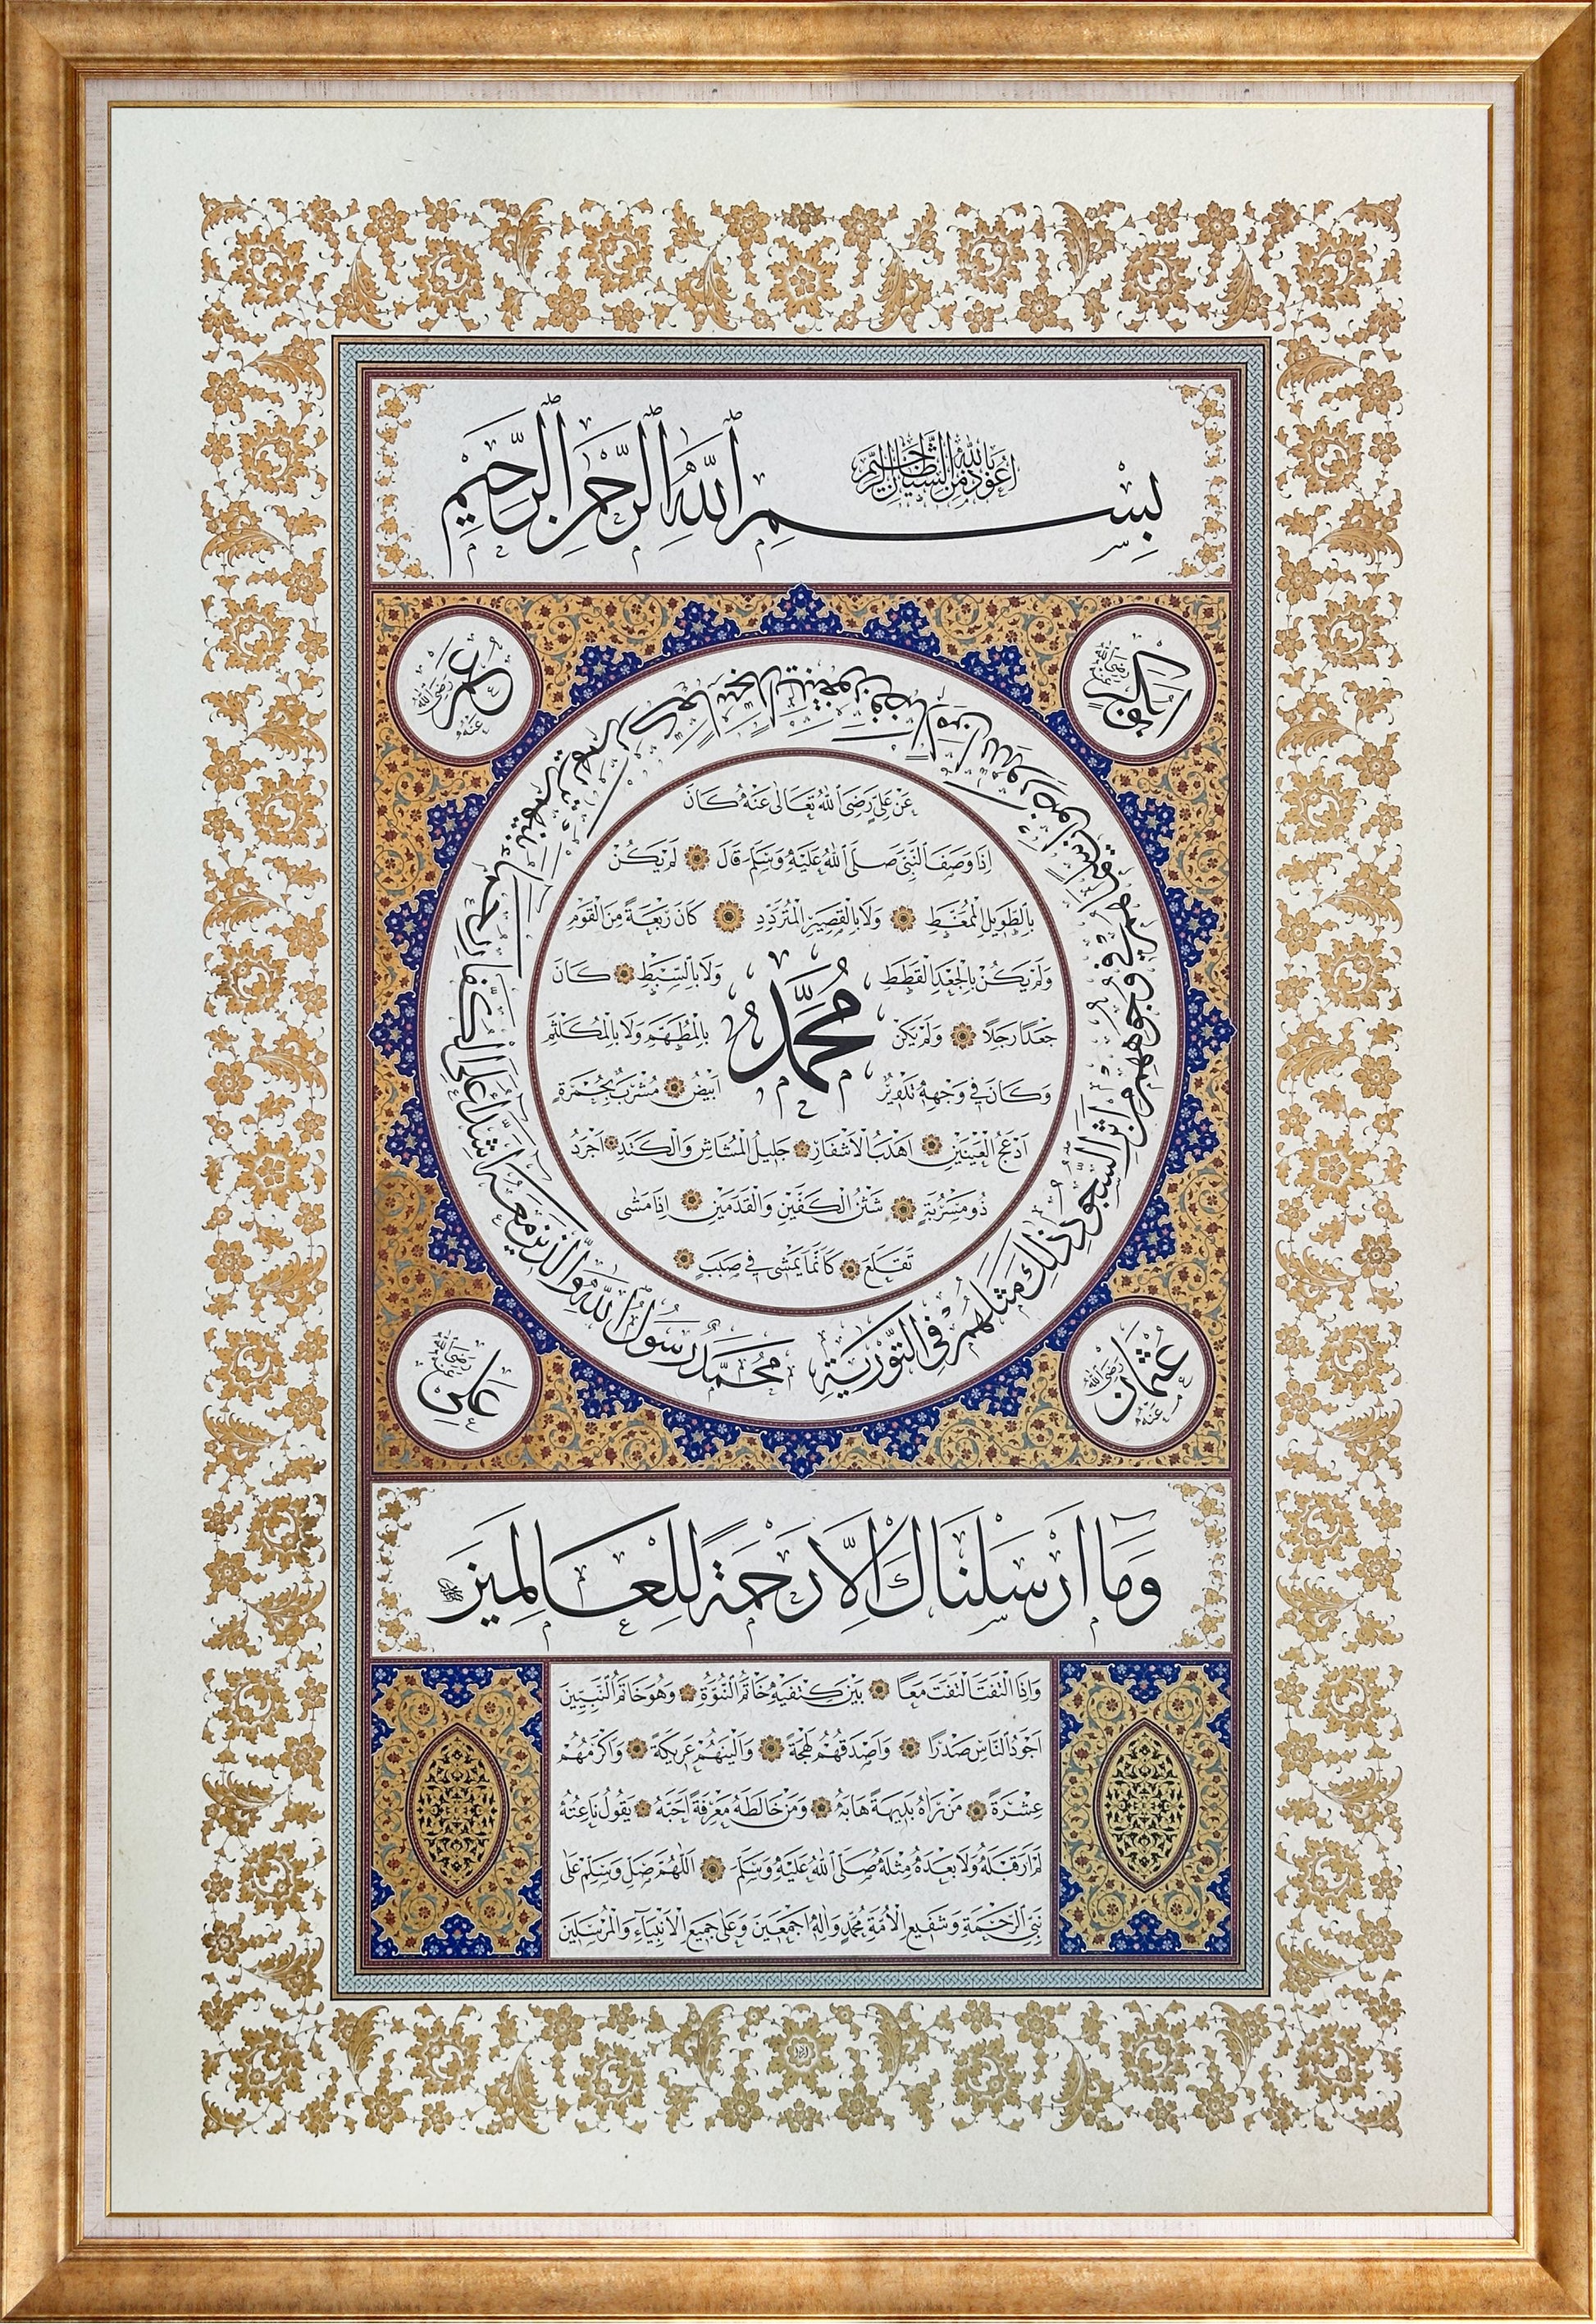 أعوذ بالله من الشيطان الرجيم
بِسْمِ اللهِ الرَّحْمٰنِ الرَّحِيمِ
أبو بكر رضي الله عنه
عمر رضي الله عنه
محمد رسول الله والذين معه أشداء على الكفار رحماء بينهم تريهم ركعا سجدا يبتغون فضلا من الله ورضوانا سيماهم في وجوههم من أثر السجود ذلك مثلهم في التورية
عَنْ عَلِيٍّ رَضِيَ اللهُ تَعَالٰى عَنْهُ كَانَ
اِذَا وَصَفَ النَّبِيَّ صَلَّى اللهُ عَلَيْهِ وَسَلَّمَ قَالَ لَمْ يَكُنْ
بِالطَّوِيلِ الْمُمَّغَطِ وَلَا بِالْقَصِيرِ الْمُتَرَدِّدِ كَانَ رَبْعَةً مِنَ الْقَوْمِ
وَلَمْ يَكُنْ بِالْجَعْدِ الْقَطَطِ وَلَا بِالسَّبْطِ كَانَ
مُحَمَّد
جَعْدًا رَجِلًا وَلَمْ يَكُنْ بِالْمُطَهَّمِ وَلَا بِالْمُكَلْثَمِ
وَكَانَ فِي وَجْهِهِ تَدْوِيرٌ اَبْيَضُ مُشْرَبٌ بِحُمْرَةٍ
اَدْعَجُ الْعَيْنَيْنِ اَهْدَبُ الْاَشْفَارِ جَلِيلُ الْمُشَاشِ وَالْكَتَدِ اَجْرَدُ
ذُو مَسْرُبَةٍ شَثْنُ الْكَفَّيْنِ وَالْقَدَمَيْنِ اِذَا مَشٰى
تَقَلَّعَ كَاَنَّمَا يَمْشِي فِي صَبَبٍ
عثمان رضي الله عنه
علي رضي الله عنه
وَمَا اَرْسَلْنَاكَ اِلَّا رَحْمَةً لِلْعَالَمِينَ
وَاِذَا الْتَفَتَ الْتَفَتَ مَعًا بَيْنَ كَتِفَيْهِ خَاتَمُ النُّبُوَّةِ وَهُوَ خَاتَمُ النَّبِيِّينَ
اَجْوَدُ النَّاسِ صَدْرًا وَاَصْدَقُهُمْ لَهْجَةً وَاَلْيَنُهُمْ عَرِيكَةً وَاَكْرَمُهُمْ
عِشْرَةً مَنْ رَاٰهُ بَدِيهَةً هَابَهُ وَمَنْ خَالَطَهُ مَعْرِفَةً اَحَبَّهُ يَقُولُ نَاعِتُهُ
لَمْ اَرَ قَبْلَهُ وَلَا بَعْدَهُ مِثْلَهُ صَلَّى اللهُ عَلَيْهِ وَسَلَّمَ اَللّٰهُمَّ صَلِّ وَسَلِّمْ عَلٰى
نَبِيِّ الرَّحْمَةِ وَشَفِيعِ الْاُمَّةِ مُحَمَّدٍ وَاٰلِهِ اَجْمَعِينَ وَعَلٰى جَمِيعِ الْاَنْبِيَاءِ وَالْمُرْسَلِينَ